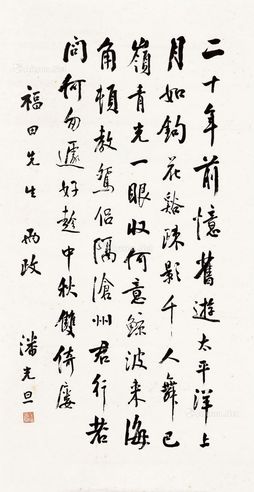 二十年前憶舊遊太平洋上
月如鉤花谿疎影千人舞已
嶺青光一眼收何意鯨波来海
角頓教鴛侶隔滄州君行若
問何匆遽好趁中秋雙倚廔
福田先生兩政
潘光旦